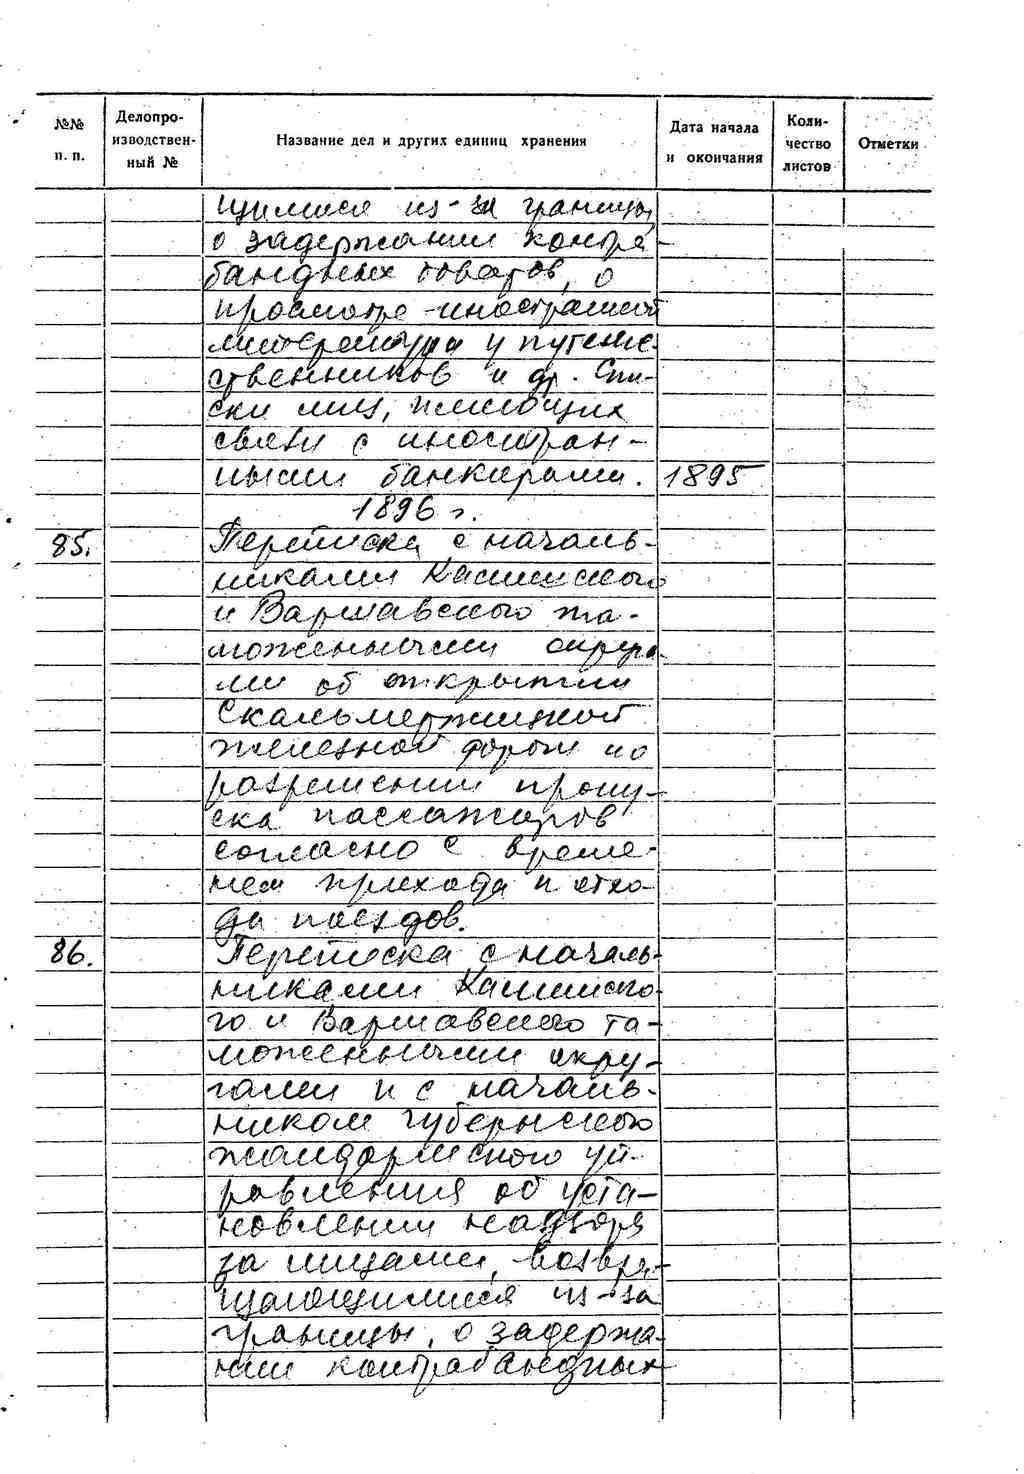 №№ п. п.
Делопро-изводствен-ный №
Название дел и других единиц хранения
Дата начала и окончания
Коли-чество листов
Отметки
щимися из-за границы,
о задержании контра-
бандных товаров, о
просмотре иностранной
литературы у путеше-
ственников и др. Спи-
ски лиц, имеющих
связи с иностран-
ными банкирами. 1895
1896 г.
85. Переписка с началь-
никами Калишского
и Варшавского та-
моженными округа-
ми об открытии
Скальмержицкой
железной дороги и о
разрешении пропу-
ска пассажиров
согласно с време-
нем прихода и отхо-
да поездов.
86. Переписка с началь-
никами Калишско-
го и Варшавского та-
моженными окру-
гами и с началь-
ником губернского
жандармского уп-
равления об уста-
новлении надзора
за лицами, возвра-
щающимися из-за
границы, о задержа-
нии контрабандных